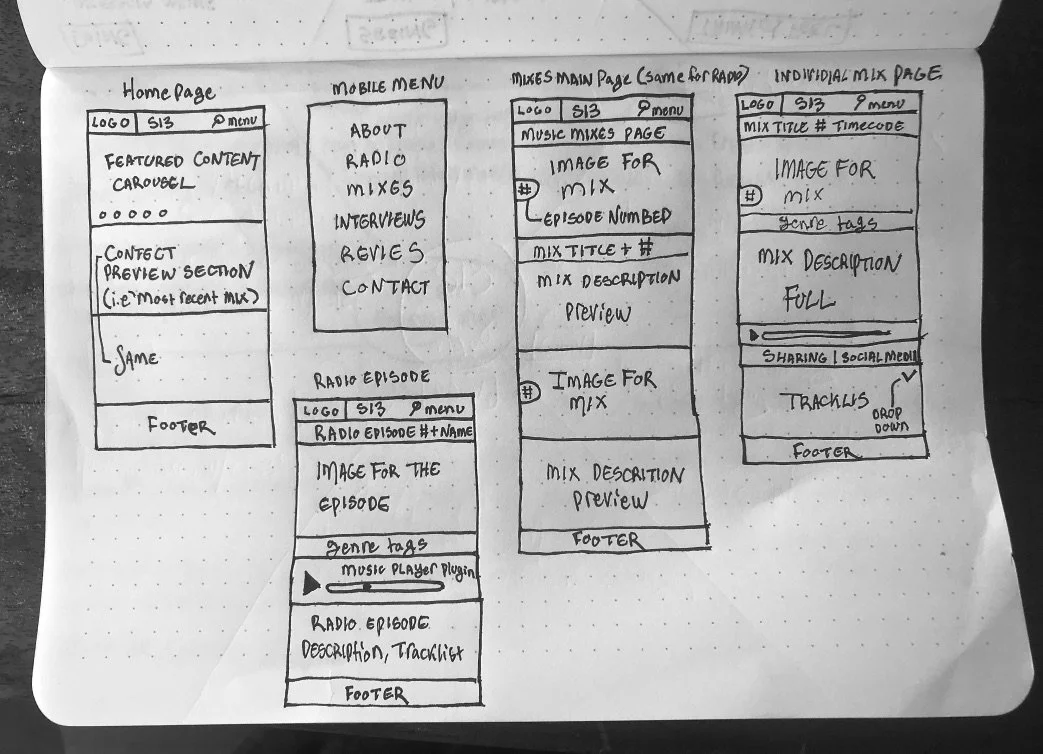 Home Page
LOGO S13 menu
FEATURED CONTENT
CAROUSEL
CONTECT
PREVIEW SECTION
(i.e "Most recent mix)
SAME
FOOTER
MOBILE MENU
ABOUT
RADIO
MIXES
INTERVIEWS
REVIES
CONTACT
RADIO EPISODE
LOGO S13 menu
RADIO EPISODE #+NAME
IMAGE FOR THE
EPISODE
genre tags
MUSIC PLAYER PLUGIN
RADIO EPISODE
DESCRIPTION, Tracklist
FOOTER
MIXES MAIN Page (same for RADIO)
LOGO S13 menu
MUSIC MIXES PAGE
IMAGE FOR
# MIX
EPISODE NUMBED
MIX TITLE + #
MIX DESCRIPTION
Preview
IMAGE FOR
# MIX
MIX DESCRITION
Preview
FOOTER
INDIVIDIAL MIX PAGE
LOGO S13 menu
MIX TITLE # TIMECODE
IMAGE FOR
# MIX
genre tags
MIX DESCRIPTION
FULL
SHARING | SOCIAL MEDIA
TRACKLIS
DROP
DOWN
FOOTER